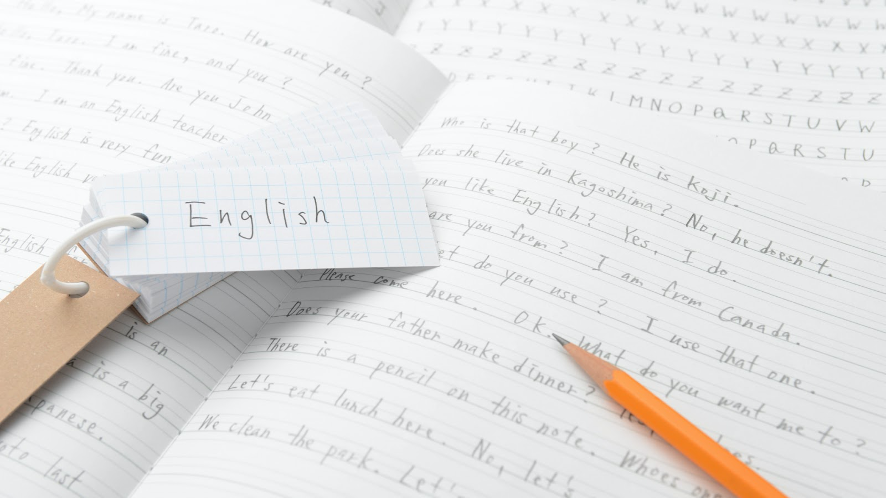 Hello, My name is Taro. How are you?
Hello Taro. I am fine, and you?
fine. Thank you. Are you John
I am an English teacher
? English is very fun
like English
English
is an
is a big
panese.
last
English
W W W W W W
Y Y Y Y Y X X X X X X
Y Y Y Y Y Y Y Y Y Y Y
Z Z Z Z Z Z Z Z Z Z
L M N O P Q R S T U V W
P Q R S T U
Who is that boy? He is Koji.
Does she live in Kagoshima? No, he doesn't.
you like English? Yes, I do.
are you from? I am from Canada.
et do you use? I use that one.
Please come here. OK. What do you want me to?
Does your father make dinner?
There is a pencil on this note. Whoes
Let's eat lunch here. No, let's
We clean the park. Let's